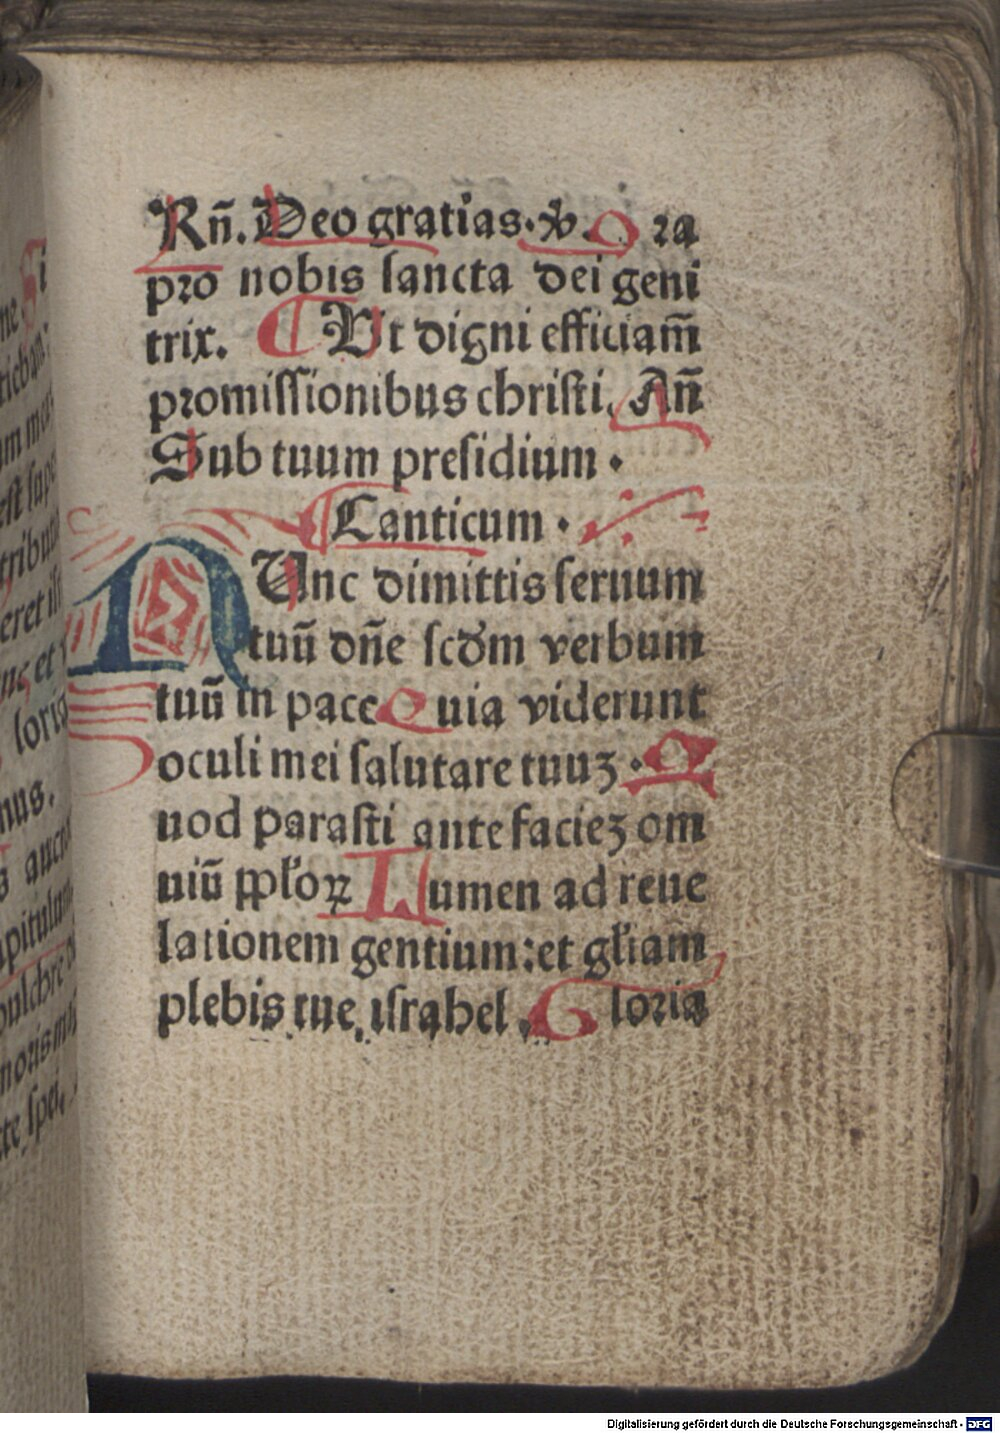 Rn̄. Deo gratias. ꝟ. Ora
pro nobis sancta dei geni
trix. Ut digni efficiam̄
promissionibus christi. An̄
Sub tuum presidium.
Canticum.
NUnc dimittis seruum
tuū dn̄e scd̄m verbum
tuū in pace Quia viderunt
oculi mei salutare tuuꝫ. Q
uod parasti ante facieꝫ om
niū pp̄loꝝ Lumen ad reue
lationem gentium: et gl̄iam
plebis tue israhel Gloria
Digitalisierung gefördert durch die Deutsche Forschungsgemeinschaft - DFG